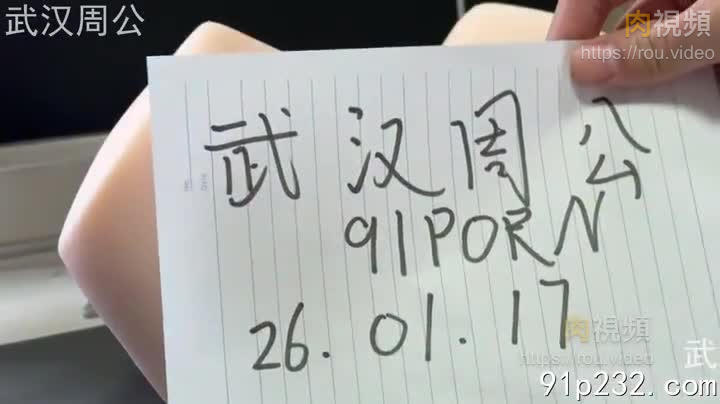 武汉周公
肉視頻
https://rou.video
武汉周公
91PORN
26.01.17
肉視頻
https://rou.video
武
91p232.com